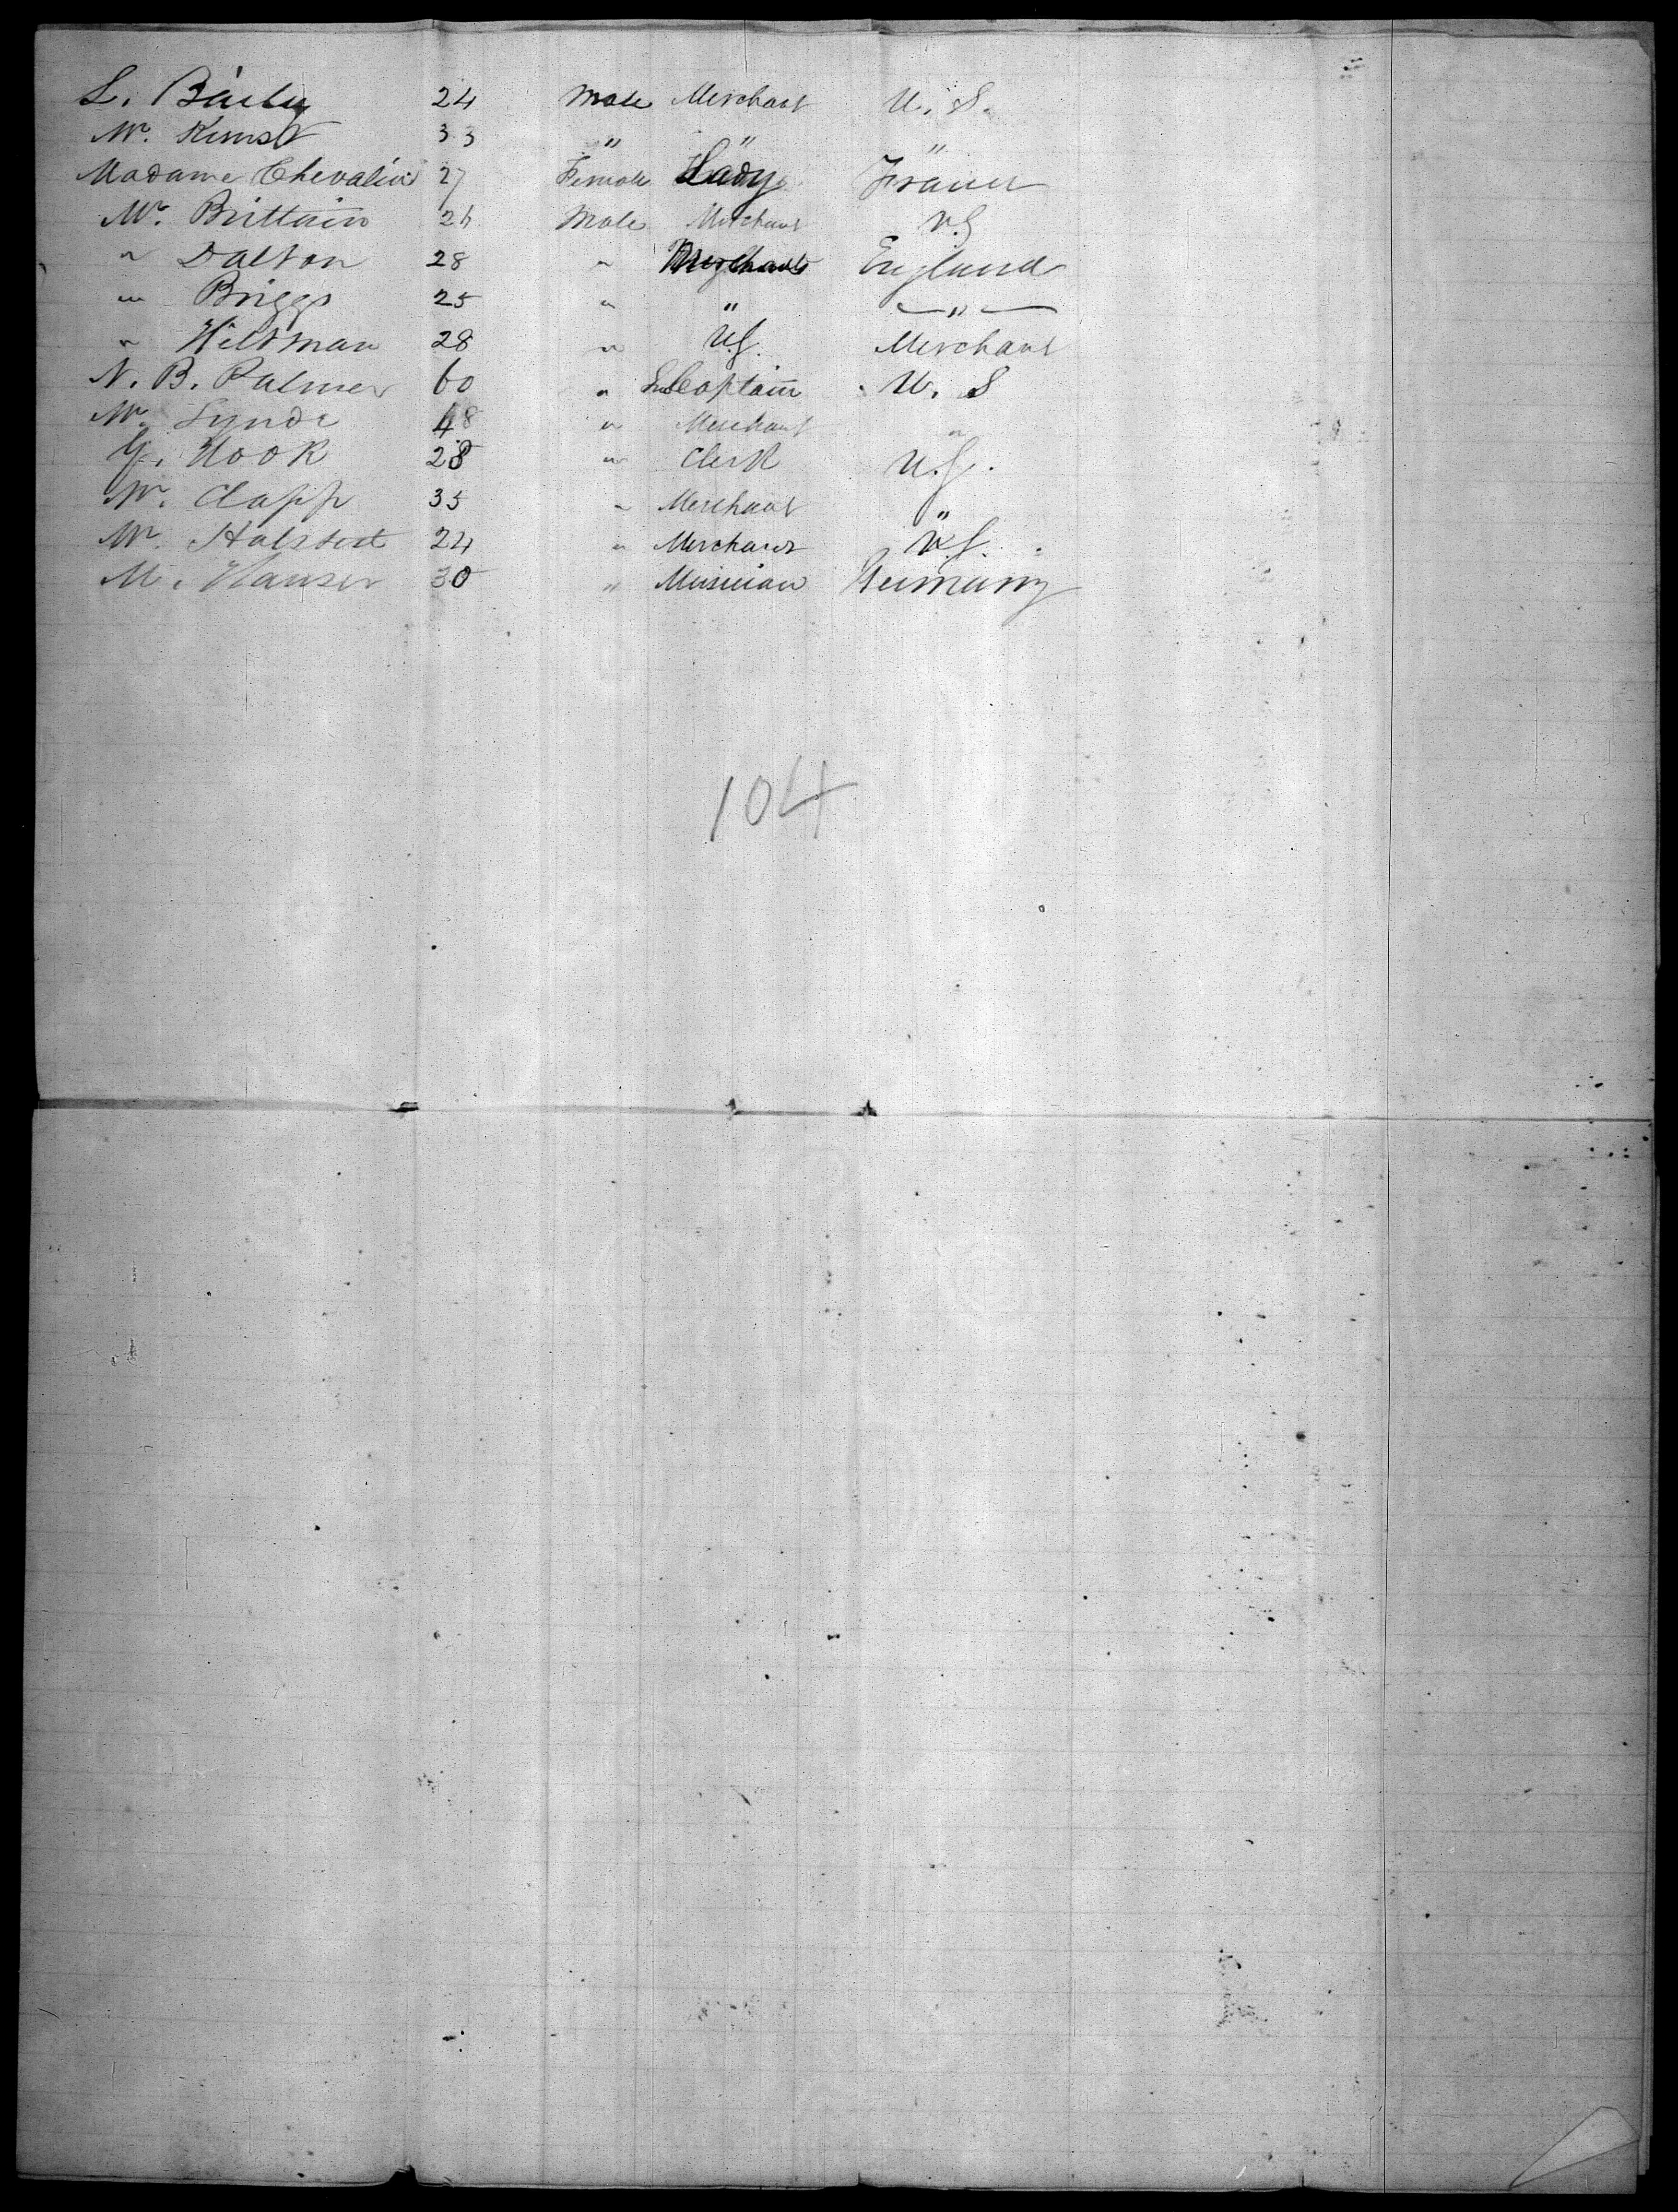 L. Baily 24 Male Merchant U. S.
Mr. Kunst 33 " " "
Madame Chevalier 27 Female Lady France
Mr. Brittain 26 Male Merchant U.S
" Dalton 28 " Merchant England
" Briggs 25 " " — " —
" Hiltman 28 " U.S. Merchant
N. B. Palmer 60 " Captain U. S
Mr. Lynde 48 " Merchant "
G. Hook 28 " Clerk U.S.
Mr. Clapp 35 " Merchant "
Mr. Halsted 24 " Merchant U.S.
M. Hauser 30 " Musician Germany
104